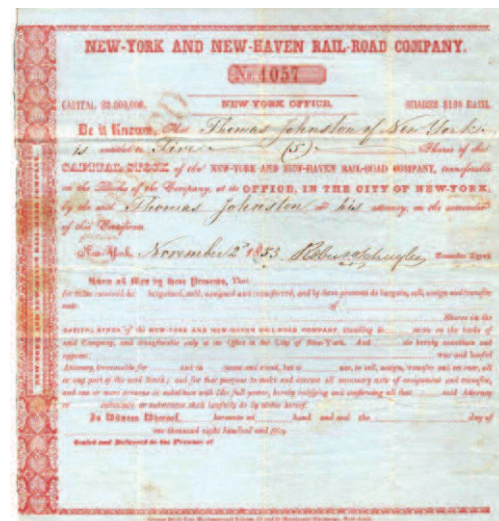 NEW-YORK AND NEW-HAVEN RAIL-ROAD COMPANY.
No. 1057
CAPITAL, $3,000,000. NEW YORK OFFICE. SHARES $100 EACH.
Be it Known, That Thomas Johnston of New York
is entitled to Five (5) Shares of the
CAPITAL STOCK of the NEW-YORK AND NEW-HAVEN RAIL-ROAD COMPANY, transferable
on the Books of the Company, at its OFFICE, IN THE CITY OF NEW-YORK,
by the said Thomas Johnston or his attorney, on the surrender
of this Certificate.
New-York, November 2d 1853 Transfer Agent.
Know all Men by these Presents, That
for value received bargained, sold, assigned and transferred, and by these presents do bargain, sell, assign and transfer
unto of
Shares in the
CAPITAL STOCK of the NEW-YORK AND NEW-HAVEN RAIL-ROAD COMPANY, standing in name on the books of
said Company, and transferable only at its Office in the City of New-York. And do hereby constitute and
appoint true and lawful
Attorney, irrevocable for and in name and stead, but to use, to sell, assign, transfer and set over, all
or any part of the said Stock; and for that purpose to make and execute all necessary acts of assignment and transfer,
and one or more persons to substitute with like full power, hereby ratifying and confirming all that said Attorney
or substitute or substitutes shall lawfully do by virtue hereof.
In Witness Whereof, hereunto set hand and seal the day of
one thousand eight hundred and fifty
Sealed and Delivered in the Presence of
NEW-YORK AND NEW-HAVEN RAIL-ROAD COMPANY